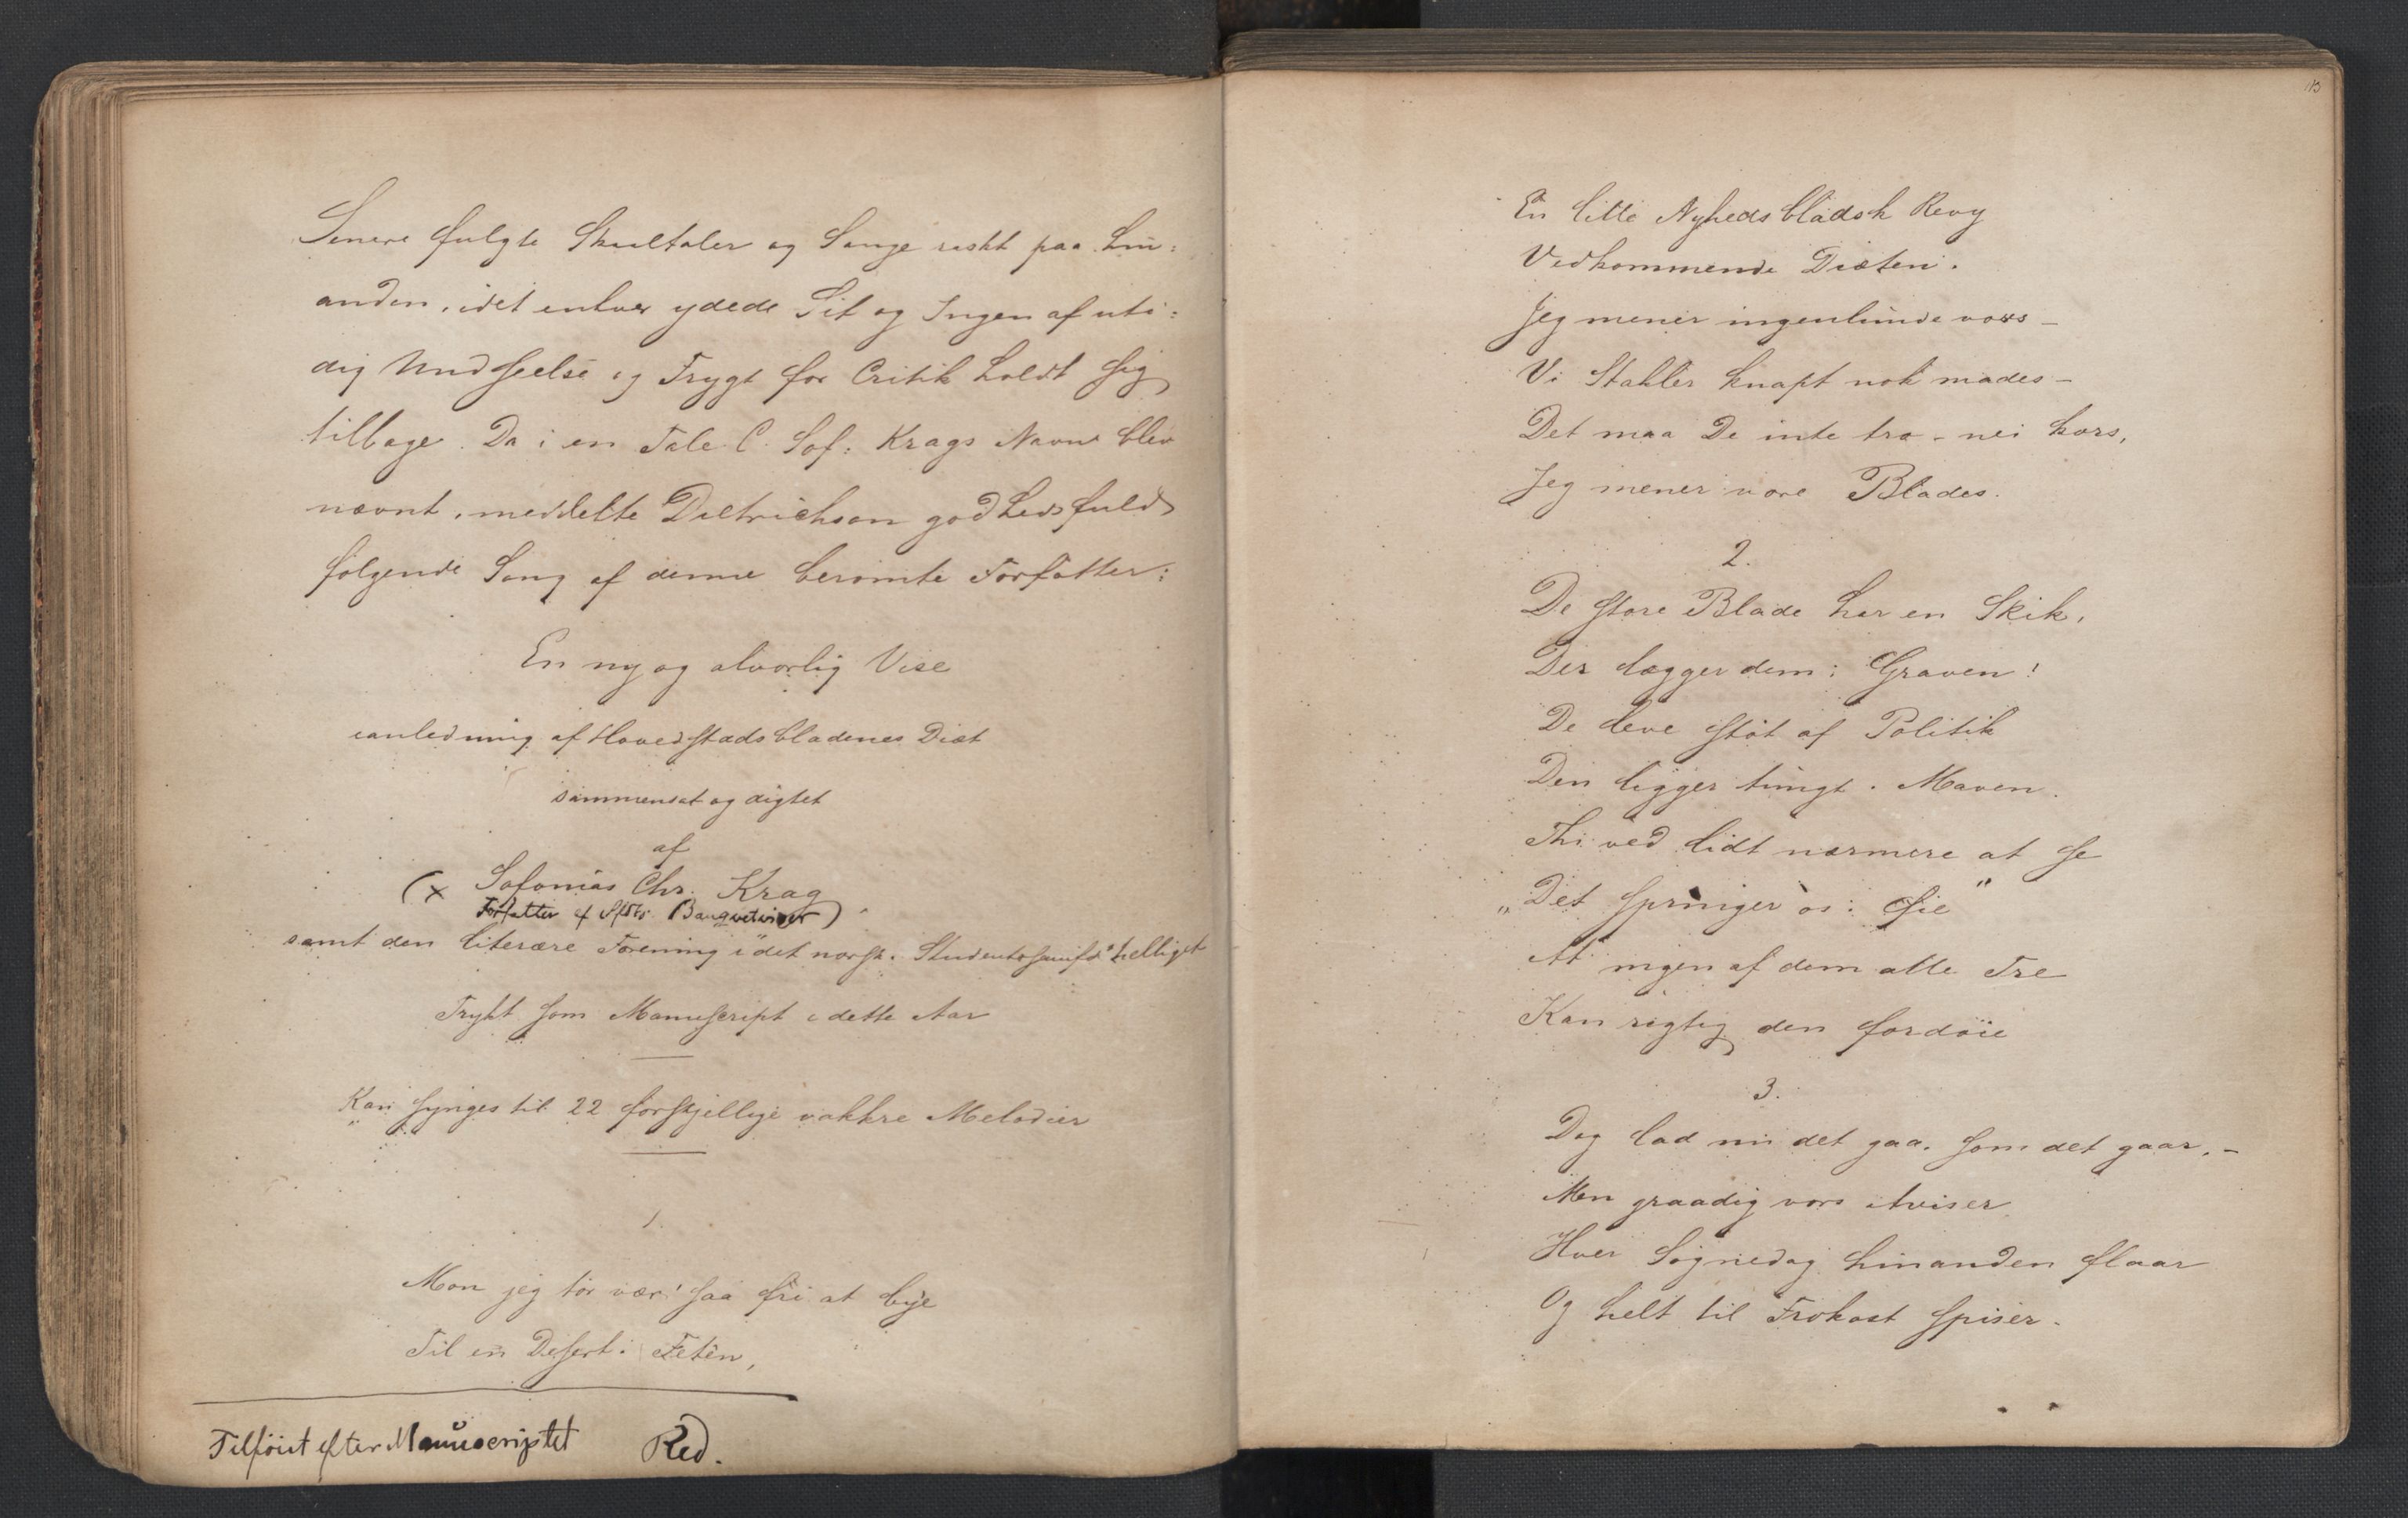 Senere fulgte Skaaltaler og Sange raskt paa hin=
anden, idet enhver ydede Sit og Ingen af uti=
dig Undseelse og Frygt for Critik holdt sig
tilbage. Da i en Tale C. Sof: Krags Navn blev
nævnt, meddelte Dietrichson godhedsfuld
følgende Sang af denne berømte Forfatter:
En ny og alvorlig Vise
ianledning af Hovedstadsbladenes Diæt
sammensat og digtet
af
(x Sofonias Chr. Krag
Forfatter af Banquetviser)
samt den literære Forening i "det norsk. Studentersamfd" helliget
Trykt som Manuscript i dette Aar
Kan synges til 22 forskjellige vakkre Melodier
1.
Mon jeg tør vær' saa fri at bye
Til en Desert i Feten,
Tilføiet efter Manuscriptet Red.
113
En litte Nyhedsbladsk Revy
Vedkommende Diæten.
Jeg mener ingenlunde vors –
Vi Stakler knapt nok mades –
Det maa De inte tro – nei kors,
Jeg mener vore Blades.
2.
De store Blade har en Skik,
Der lægger dem i Graven!
De leve støt af Politik
Den ligger tungt i Maven.
Thi ved lidt nærmere at se
"Det springer os i Øie"
At ingen af dem alle Tre
Kan rigtig den fordøie
3.
Dog lad nu det gaa, som det gaar, –
Men graadig vors Aviser
Hver Søgnedag hinanden flaar
Og helt til Frokost spiser.